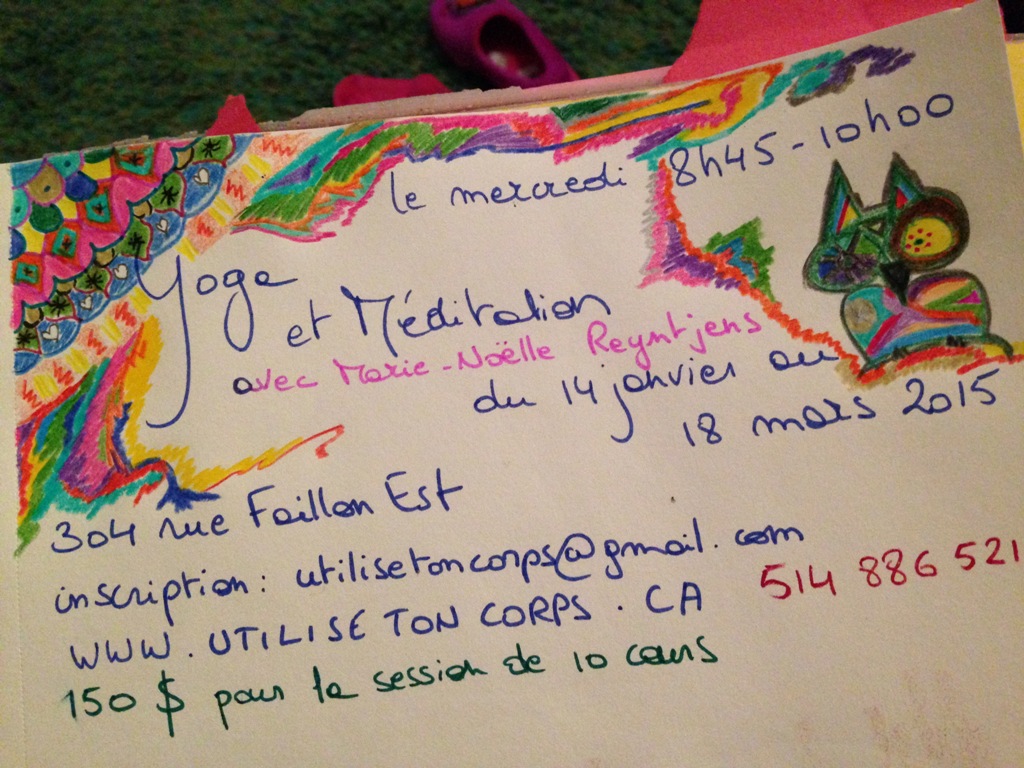 le mercredi 8h45-10h00
Yoga
et Méditation
avec Marie-Noëlle Reyntjens
du 14 janvier au
18 mars 2015
304 rue Faillon Est
inscription: utilisetoncorps@gmail.com
514 886 521
WWW.UTILISE TON CORPS.CA
150 $ pour la session de 10 cours